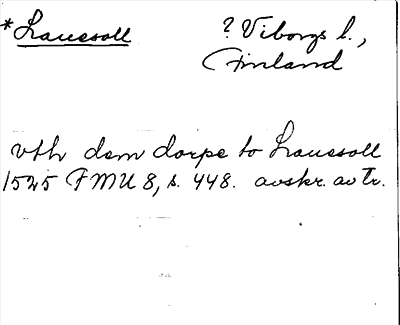 *Lraussoll ? Viborgs l.,
Finland
vth dem dorpe to Lraussoll
1525 FMU 8, s. 448. avskr. av Tr.